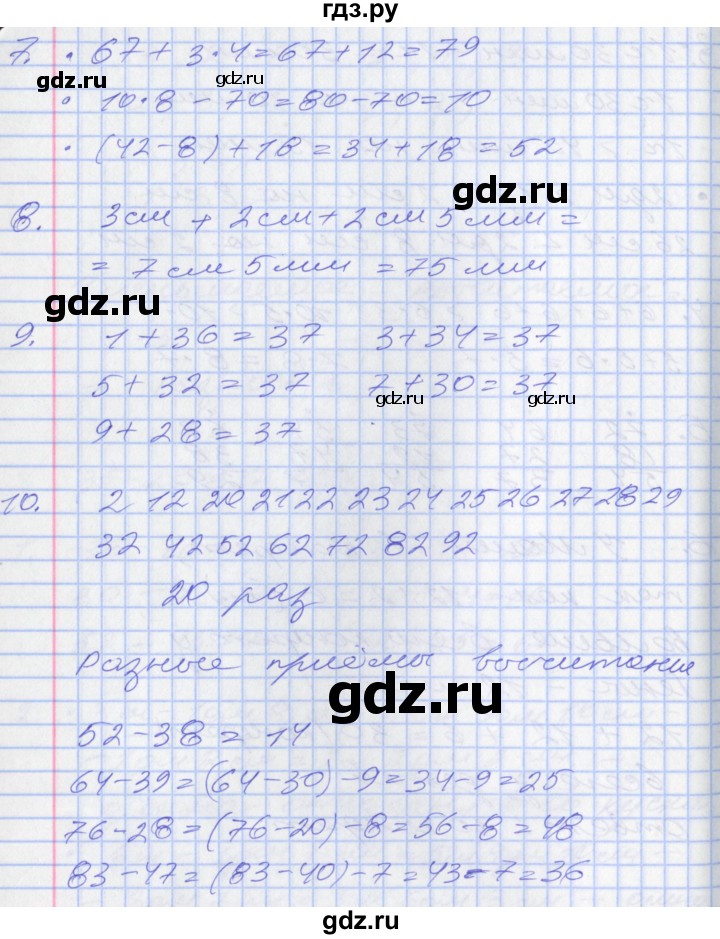 гдз.ру
7. · 67 + 3 · 4 = 67 + 12 = 79
· 10 · 8 - 70 = 80 - 70 = 10
· (42 - 8) + 18 = 34 + 18 = 52
gdz.ru
8. 3см + 2см + 2см 5мм =
= 7см 5мм = 75мм
gdz.ru
gdz.ru
9. 1 + 36 = 37 3 + 34 = 37
5 + 32 = 37 7 + 30 = 37
gdz.ru gdz.ru
9 + 28 = 37
10. 2 12 20 21 22 23 24 25 26 27 28 29
32 42 52 62 72 82 92
20 раз
Разные приёмы вычитание
gdz.ru
52 - 38 = 14
64 - 39 = (64 - 30) - 9 = 34 - 9 = 25
76 - 28 = (76 - 20) - 8 = 56 - 8 = 48
83 - 47 = (83 - 40) - 7 = 43 - 7 = 36
gdz.ru